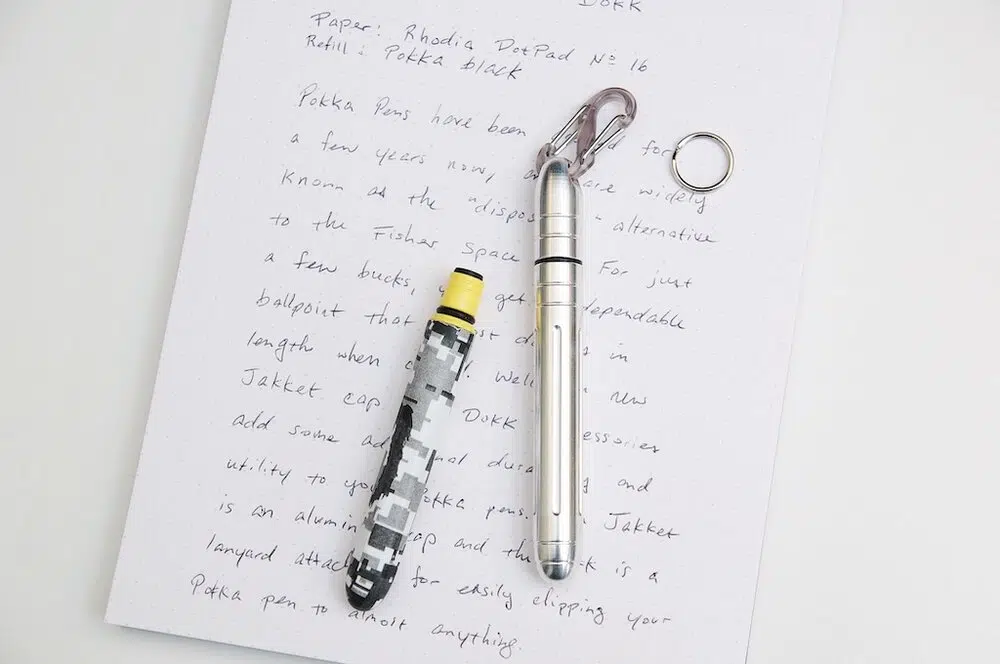 Dokk
Paper: Rhodia DotPad Nº 16
Refill: Pokka black
Pokka Pens have been for
a few years now, are widely
known as the "dispos " alternative
to the Fisher Space For just
a few bucks, get dependable
ballpoint that in
length when Well new
Jakket cap Dokk essories
add some ad nal dura and
utility to you Pokka pens. Jakket
is an alumin cap and the k is a
lanyard attac for easily clipping your
Pokka pen to almost anything.